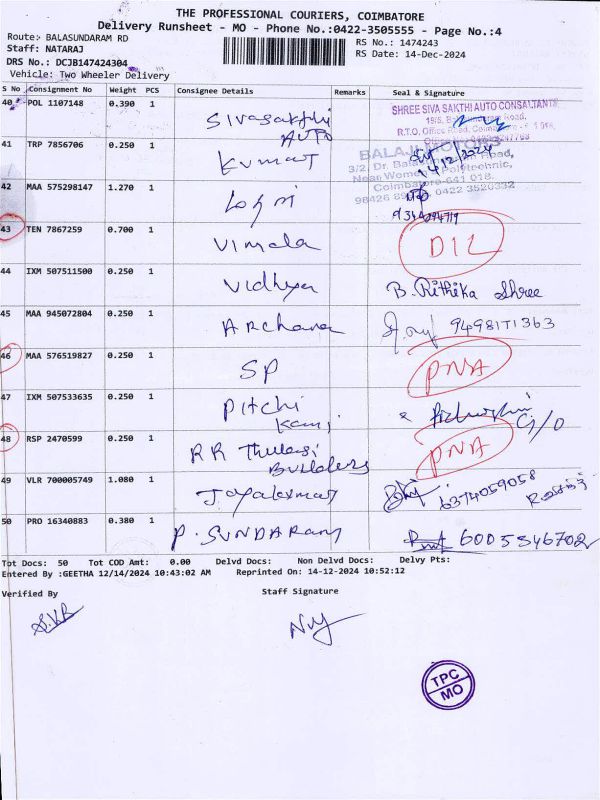 THE PROFESSIONAL COURIERS, COIMBATORE
Delivery Runsheet - MO - Phone No.:0422-3505555 - Page No.:4
Route:- BALASUNDARAM RD
RS No.: 1474243
Staff: NATARAJ
RS Date: 14-Dec-2024
DRS No.: DCJB147424304
Vehicle: Two Wheeler Delivery
S No Consignment No Weight PCS Consignee Details Seal & Signature
40 POL 1107148 0.390 1 Sivasakthi AUTO
SHREE SIVA SAKTHI AUTO CONSULTANTS
R.T.O, Office Road,
41 TRP 7856706 0.250 1 Kumar
14/12/2024
BALAJI MOTORS
3/2, Dr. Road,
Near Women Polytechnic,
Coimbatore-641 018.
0422 3520332
42 MAA 575298147 1.270 1
43 TEN 7867259 0.700 1 Vimala DIL
44 IXM 507511500 0.250 1 Vidhya B. Rithika Shree
45 MAA 945072804 0.250 1 Archana
46 MAA 576519827 0.250 1 SP PNA
47 IXM 507533635 0.250 1 Pitchi Kani C/O
48 RSP 2470599 0.250 1 RR Thulasi Builders PNA
49 VLR 700005749 1.080 1 Jayalexmas 6374059058
50 PRO 16340883 0.380 1 P. SUNDARAM
Tot Docs: 50 Tot COD Amt: 0.00 Delvd Docs: Non Delvd Docs: Delvy Pts:
Entered By :GEETHA 12/14/2024 10:43:02 AM Reprinted On: 14-12-2024 10:52:12
Verified By Staff Signature
S.V.B
TPC
MO